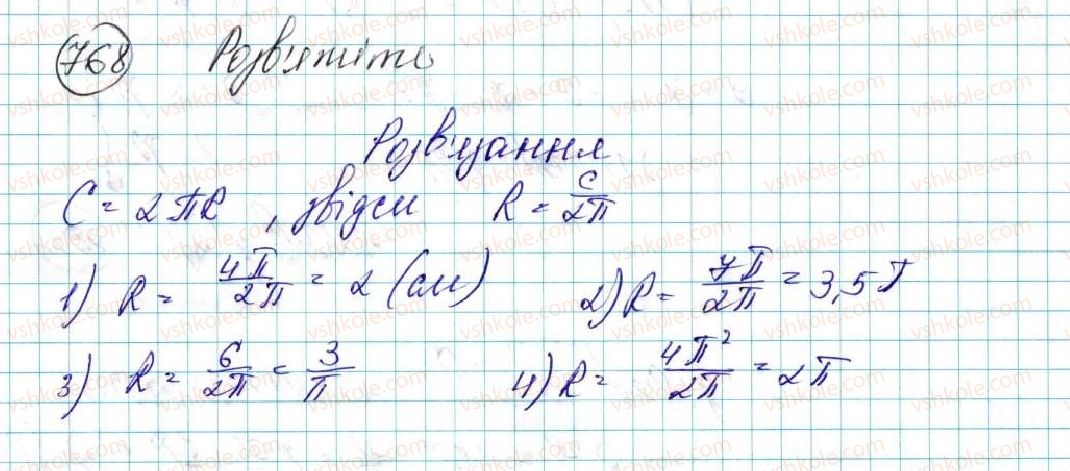 768 Розв'яжіть
Розв'язання
C = 2πR, звідси R = C/2π
1) R = 4π/2π = 2 (см) 2) R = 7π/2π = 3,5
3) R = 6/2π = 3/π 4) R = 4π²/2π = 2π